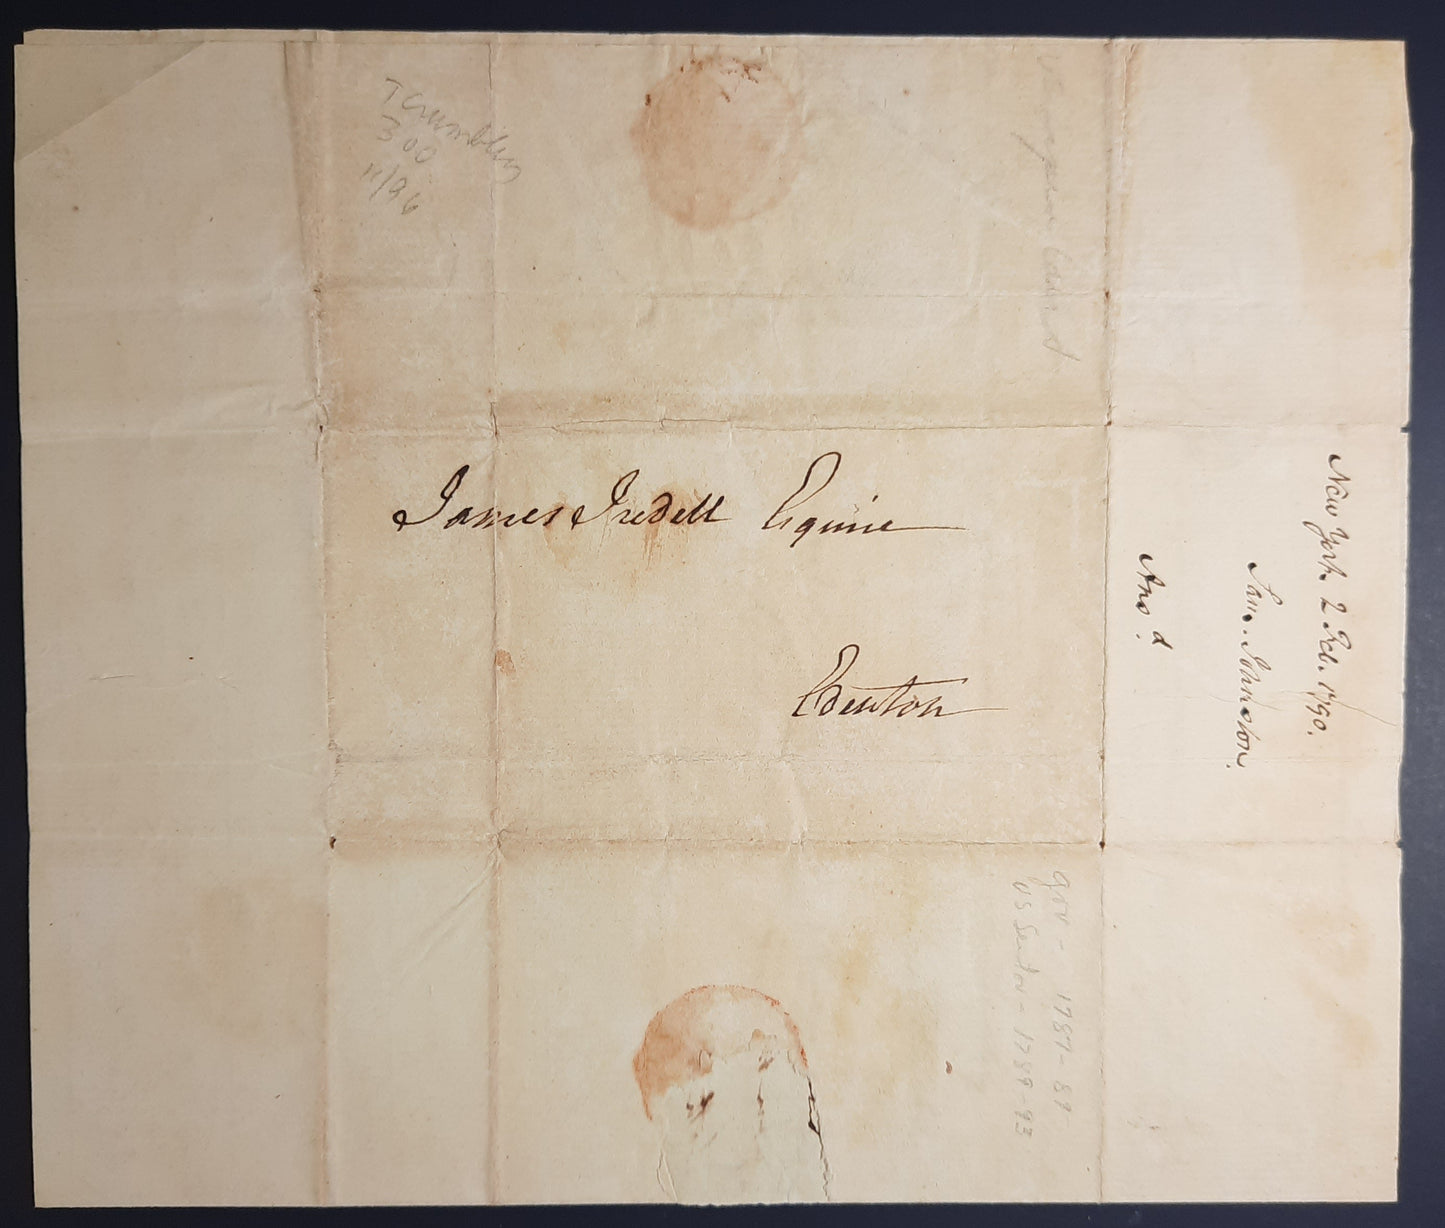 James Iredell Esquire
Edenton
New York. 2 Feb. 1790.
Sam. Johnston.
Ansd.
300
11/96
gov - 1787-89
US Senator - 1789-93